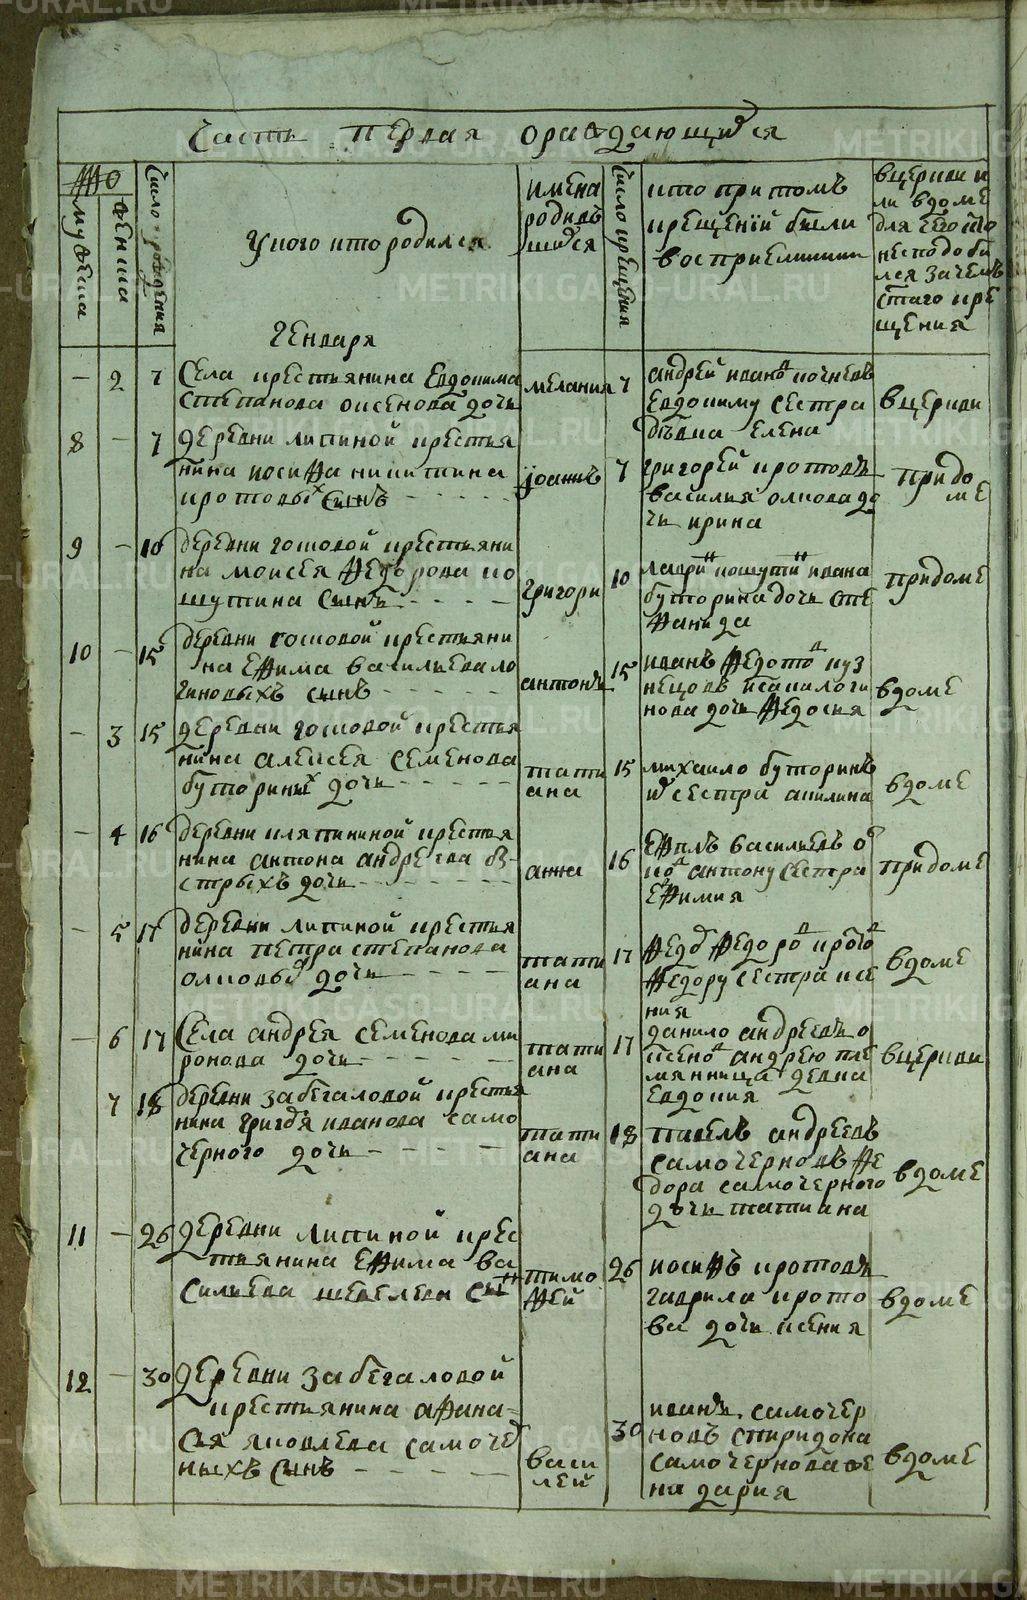 Часть первая ораждающихся
Число рождения
имена
родивъ
шихся
Число крещения
кто при томъ
крещенїи были
восприемники
вцеркви и
ли вдоме
для чего
неподоби
лся зачемъ
стаго кре
щения
мужеска
женска
Укого кто родился
Генваря
2 7
Села крестьянина Евдокима
Степанова аксенова дочь
мелания 7
андрей
Евдокиму сестра
Елена
вцеркви
8 7
деревни липиной крестья
нина иосифа никитина
кротовых сынъ
їоаннъ 7
григорей кротовъ
василия
чь ирина
придо
ме
9 10
деревни гошовой крестьяни
на моисея федорова ко
шутина сынъ
григори 10
ивана
буторина дочь сте
фанида
придоме
10 15
деревни гошовой крестьяни
на ефима василиева ло
гиновыхъ сынъ
антонъ 15
иванъ федото куз
нецовъ логи
нова дочь федосия
вдоме
3 15
деревни гошовой крестья
нина алексея семенова
буториных дочь
тати
ана
15
михаило буторинъ
сестра акилина
вдоме
4 16
деревни крестья
нина антона андреева бы
стрыхъ дочь
анна
16
василиевъ
антону сестра
Ефимия
придоме
5 17
деревни липиной крестья
нина петра степанова
дочь
тати
ана
17
федор федоров
федору сестра ксе
ния
вдоме
6 17
Села андрея семенова ми
ронова дочь
тати
ана
17
данило андреевъ
андрею пле
мянница девка
Евдокия
вцеркви
7 18
деревни забегаловой крестья
нина григоря иванова само
черного дочь
тати
ана
18
павелъ андреевъ
самочерновъ фе
дора самочерного
дочь татиана
вдоме
11 26
деревни липиной крес
тьянина Ефима ва
силиева сын
тимо
фей
26
иосифъ кротовъ
гаврила крото
ва дочь ксения
вдоме
12 30
деревни забегаловой
крестьянина афана-
сья яковлева самочер
ныхъ сынъ
васи
лей
30
иванъ самочер
новъ спиридона
самочернова же
на дария
вдоме
METRIKI.GASO-URAL.RU